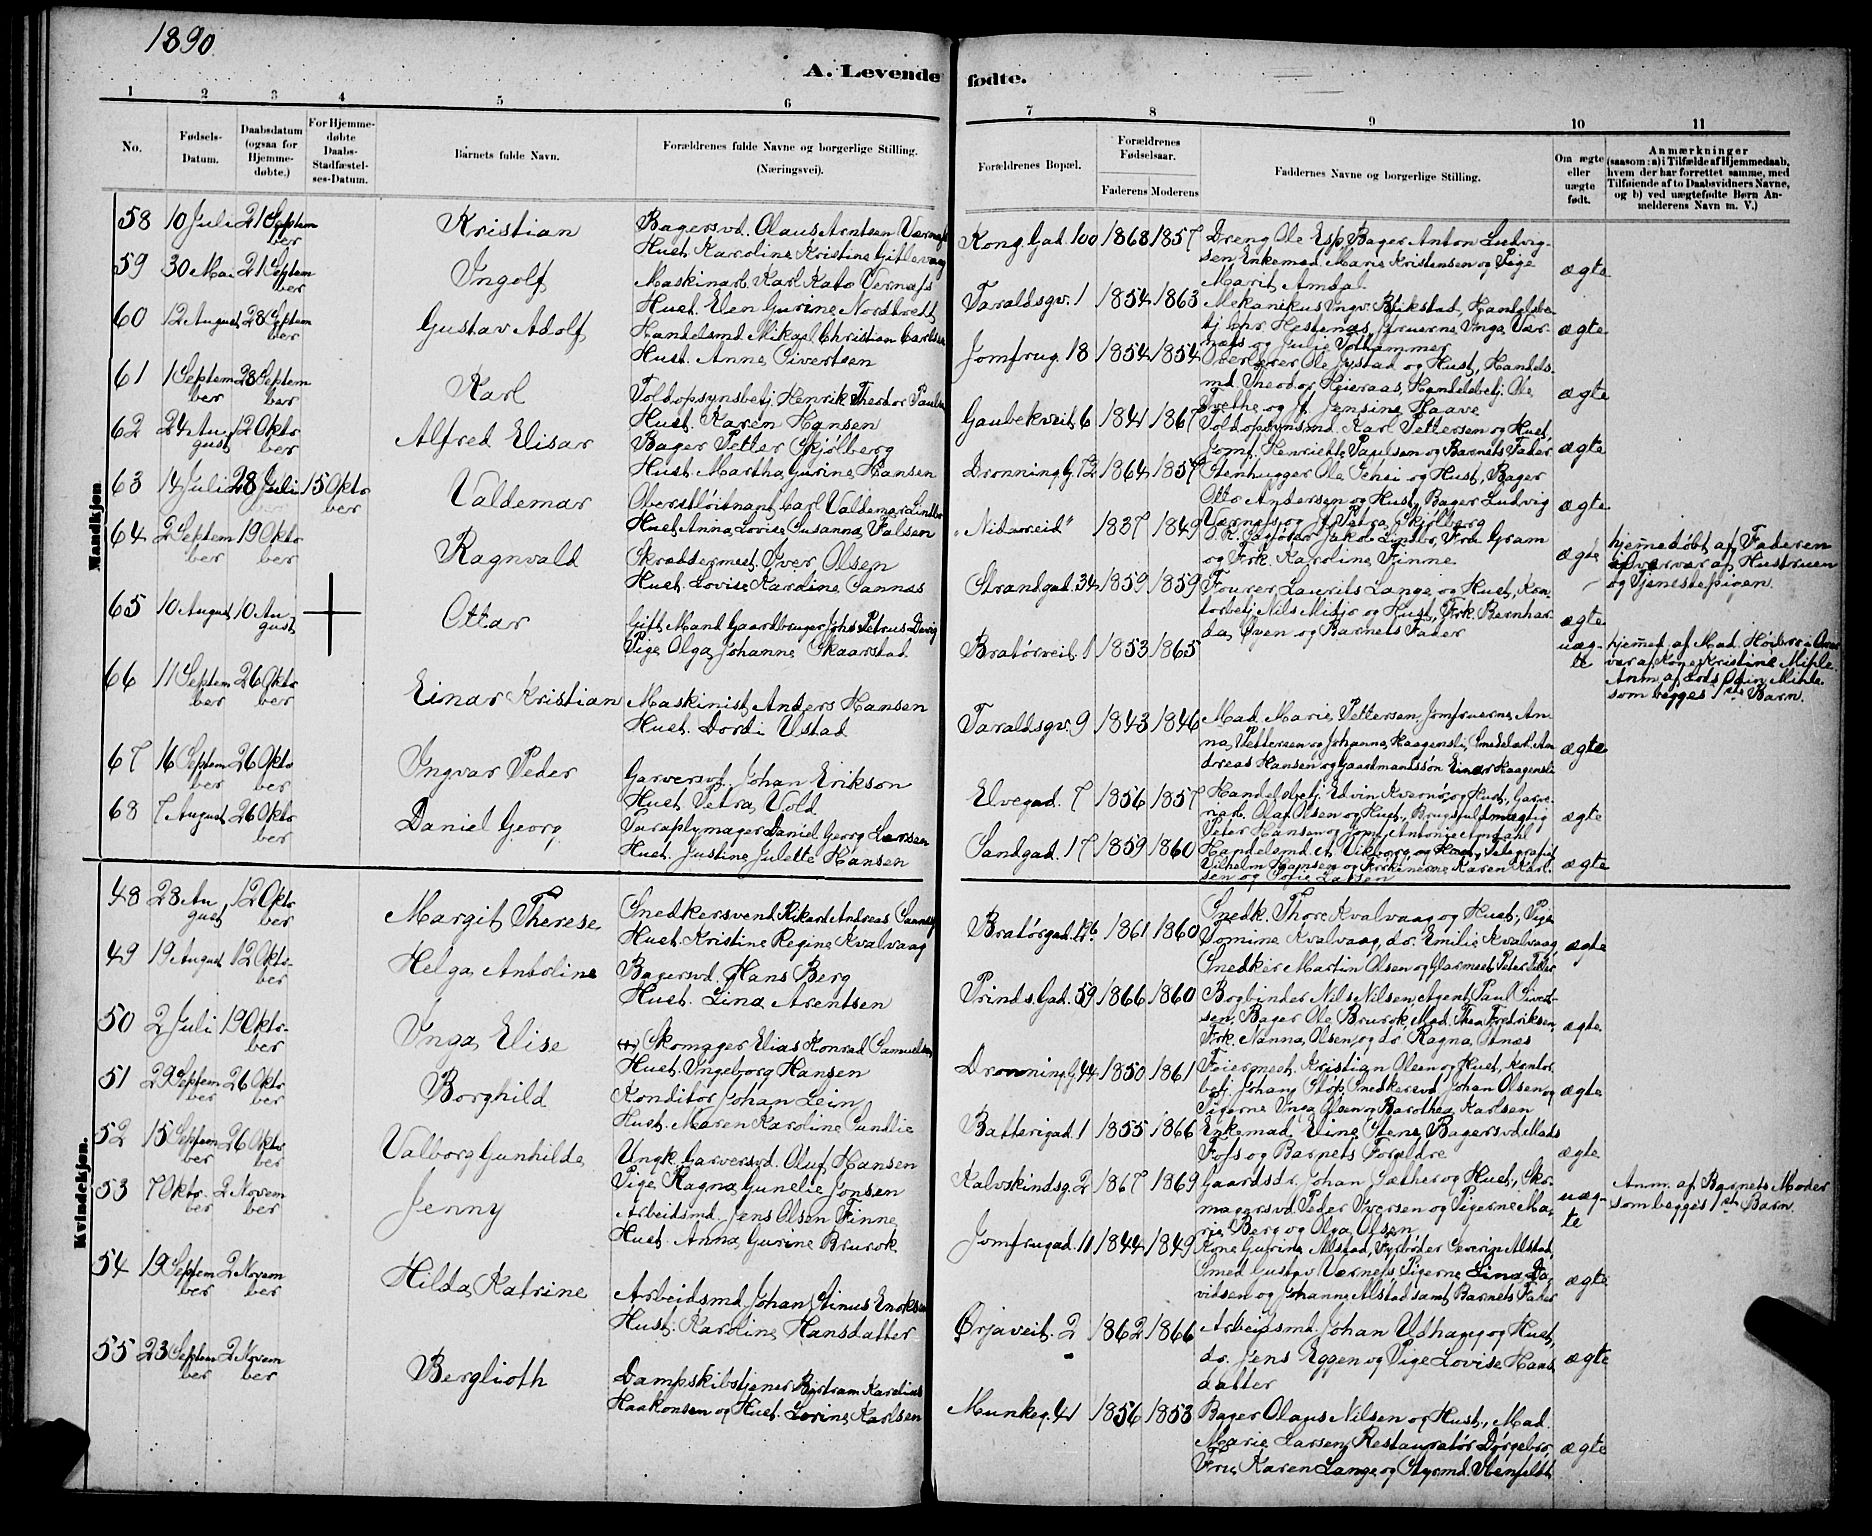 1890.
A. Levende fødte.
1 2 3 4 5 6 7 8 9 10 11
No.
Fødsels-Datum.
Daabsdatum (ogsaa for Hjemmedøbte.)
For Hjemmedøbte Daabs-Stadfæstelses-Datum.
Barnets fulde Navn.
Forældrenes fulde Navne og borgerlige Stilling.
(Næringsvei).
Forældrenes Bopæl.
Forældrenes Fødselsaar.
Faderens Moderens
Faddernes Navne og borgerlige Stilling.
Om ægte eller uægte født.
Anmærkninger
(saasom: a) i Tilfælde af Hjemmedaab, hvem der har forrettet samme, med Tilføiende af to Daabsvidners Navne, og b) ved uægtefødte Børn Anmelderens Navn m. V.)
Mandkjøn
58 10 Juli 21 September Kristian
Bagersvd. Olaus Arntsen Værnæs
Hust. Karoline Kristine Gitlevaag
Kong. Gad. 100 1868 1857
Dreng Ole Esp, Bager Anton Ludvig-
sen, Enkemad. Marie Kristensen og Pige
Marit Amdal
ægte
59 30 Mai 21 September Ingolf
Maskinarb. Karl Kato Vernæs
Hust. Elen Gurine Nordtvedt
Taraldsgv. 1 1854 1863
Mekanikus Ingv. Blikstad, Handelsbe-
tj. Chr. Hestenæs, Fruerne Inga Vær-
næs og Julie Tolhammer
ægte
60 12 August 28 September Gustav Adolf
Handelsmd. Mikael Christian Carlsen
Hust. Anne Sivertsen
Jomfrug. 18 1854 1854
Overlærer Ole Jystad og Hust, Handels-
md. Theodor Heieraas, Handelsbetj. Ole
Tvethe og J. Jensine Haave
ægte
61 1 September 28 September Karl
Toldopsynsbetj. Henrik Theodor Paulsen
Hust. Karen Hansen
Gaubekveit. 6 1841 1867
Toldopsynsmd. Karl Pettersen og Hust,
Jomf. Henriette Paulsen og Barnets Fader
ægte
62 24 August 12 Oktober Alfred Elisar
Bager Petter Skjølberg
Hust. Martha Gurine Hansen
Dronning. G. 72 1864 1857
Stenhugger Ole Schei og Hust, Bager
Otto Andersen og Hust, Bager Ludvig
Værnæs og J. Petra Skjølberg
ægte
63 14 Juli 28 Juli 15 Oktober Valdemar
Oberstløitnant Carl Valdemar Lindbo
Hust. Anna Lovise Susanna Falsen
"Nidareid" 1837 1849
O.R. Sagfører Jakob Lindbo, Fru Gram
og Frk. Karoline Finne
ægte
hjemedøbt af Faderen
Nærvær af Hustruen
og Tjenestepigen.
64 2 September 19 Oktober Ragnvald
Skræddermest. Iver Olsen
Hust. Lovise Karoline Sannes
Strandgad. 34 1859 1859
Fourer Laurits Lange og Hust, Kon-
torbetj. Nils Midjo og Hust, Frk. Bernhar-
da Øyen og Barnets Fader
ægte
65 10 August 10 August Ottar
Gift Mand Gaardbruger Johs Petrus Devig
Pige Olga Johanne Skaarstad
Bratørveit. 1 1853 1865
uægte
hjemed. af Mad. Høibro i Overvær af Kone Kristine Mihle.
Anm. af Lods Odin Mihle
som begges 1ste Barn.
66 11 September 26 Oktober Einar Kristian
Maskinist Anders Hansen
Hust. Dordi Ustad
Taraldsgv. 9 1843 1846
Mad. Marie Pettersen, Jomfruerne An-
na Pettersen og Johanna Haagensli, Smedelærl. An-
dreas Hansen og Gaardmandssøn Einar Haagensli
ægte
67 16 September 26 Oktober Ingvar Peder
Garversvd. Johan Erikson
Hust. Petra Vold
Elvegad. 7 1856 1857
Handelsbetj. Edvin Kvernø og Hust, Garve-
riarb. Olaf Olsen og Hust, Brugsfuldmægtig
Peter Hansen og Jomf. Antonie Amdahl
ægte
68 7 August 26 Oktober Daniel Georg
Paraplymager Daniel Georg Larsen
Hust. Justine Julette Hansen
Sandgad. 17 1859 1860
Handelsmd. A. Vikborg og Hust, Telegrafist
Vilhelm Hansen og Frøknerne Karen Karl-
sen og Sofie Larsen
ægte
Kvindekjøn.
48 28 August 12 Oktober Margit Therese
Snedkersvend Rikard Andreas Sannes
Hust. Kristine Regine Kvalvaag
Bratørgad. 1861 1860
Snedk. Thore Kvalvaag og Hust, Pige
Tomine Kvalvaag, do. Emilie Kvalvaag,
Snedker Martin Olsen og Glarmest. Peter Fider
ægte
49 19 August 12 Oktober Helga Antoline
Bagersvd. Hans Berg
Hust. Lina Arentsen
Prinds. Gad. 59 1866 1860
Bogbinder Nils Nilsen, Agent Paul Sivert-
sen, Bager Ole Brurok, Mad. Thea Fredriksen,
Frk. Nanna Olsen og do Ragna Atnæs
ægte
50 2 Juli 19 Oktober Inga Elise
(+) Skomager Elias Konrad Samuelsen
Hust. Ingeborg Hansen
Dronning. G. 44 1850 1861
Feiermest. Kristian Olsen og Hust, Kontor-
betj. Johan Støp, Snedkersvd. Johan Olsen og
Pigerne Inga Olsen og Barothea Karlsen
ægte
51 29 September 26 Oktober Borghild
Konditor Johan Lein
Hust. Maren Karoline Sundlie
Batterigad. 1 1855 1866
Enkemad. Eline Stene, Bagersvd. Mads
Fofs og Barnets Forældre
ægte
52 15 September 26 Oktober Valborg Gunhilde
Ungk. Garversvd. Oluf Hansen
Pige Ragna Gunelie Jonsen
Kalvskindsg. 2 1867 1869
Gaardsdr. Johan Sæther og Hust, Sko-
magersvd. Peder Iversen og Pigerne Ma-
rie Berg og Olga Olsen
uægte
Anm. af Barnets Moder
som begges 1ste Barn.
53 7 Oktober 2 November Jenny
Arbeidsmd. Jens Olsen Finne
Hust. Anna Gurine Brurok
Jomfrugad. 11 1844 1849
Kone Gurine Alstad, Fyrbøder Severin Alstad,
Smed Gustav Værnes, Pigerne Lina Da-
vidsen og Johanne Alstad samt Barnets Fader
ægte
54 19 September 2 November Hilda Katrine
Arbeidsmd. Johan Stinus Enoksen
Hust. Karoline Hansdatter
Ørjaveit. 2 1862 1866
Arbeidsmd. Johan Udhaug og Hust,
do. Jens Eggen og Pige Lovise Hans-
datter
ægte
55 23 September 2 November Berglioth
Dampskibstjener Bertram Karelius
Haakonsen og Hust. Lorine Karlsen
Munkeg. 41 1856 1853
Bager Olaus Nilsen og Hust, Mad.
Marie Larsen, Restauratør Dørgebro,
Fru Karen Lange og Styrmd. Stenfeldt
ægte